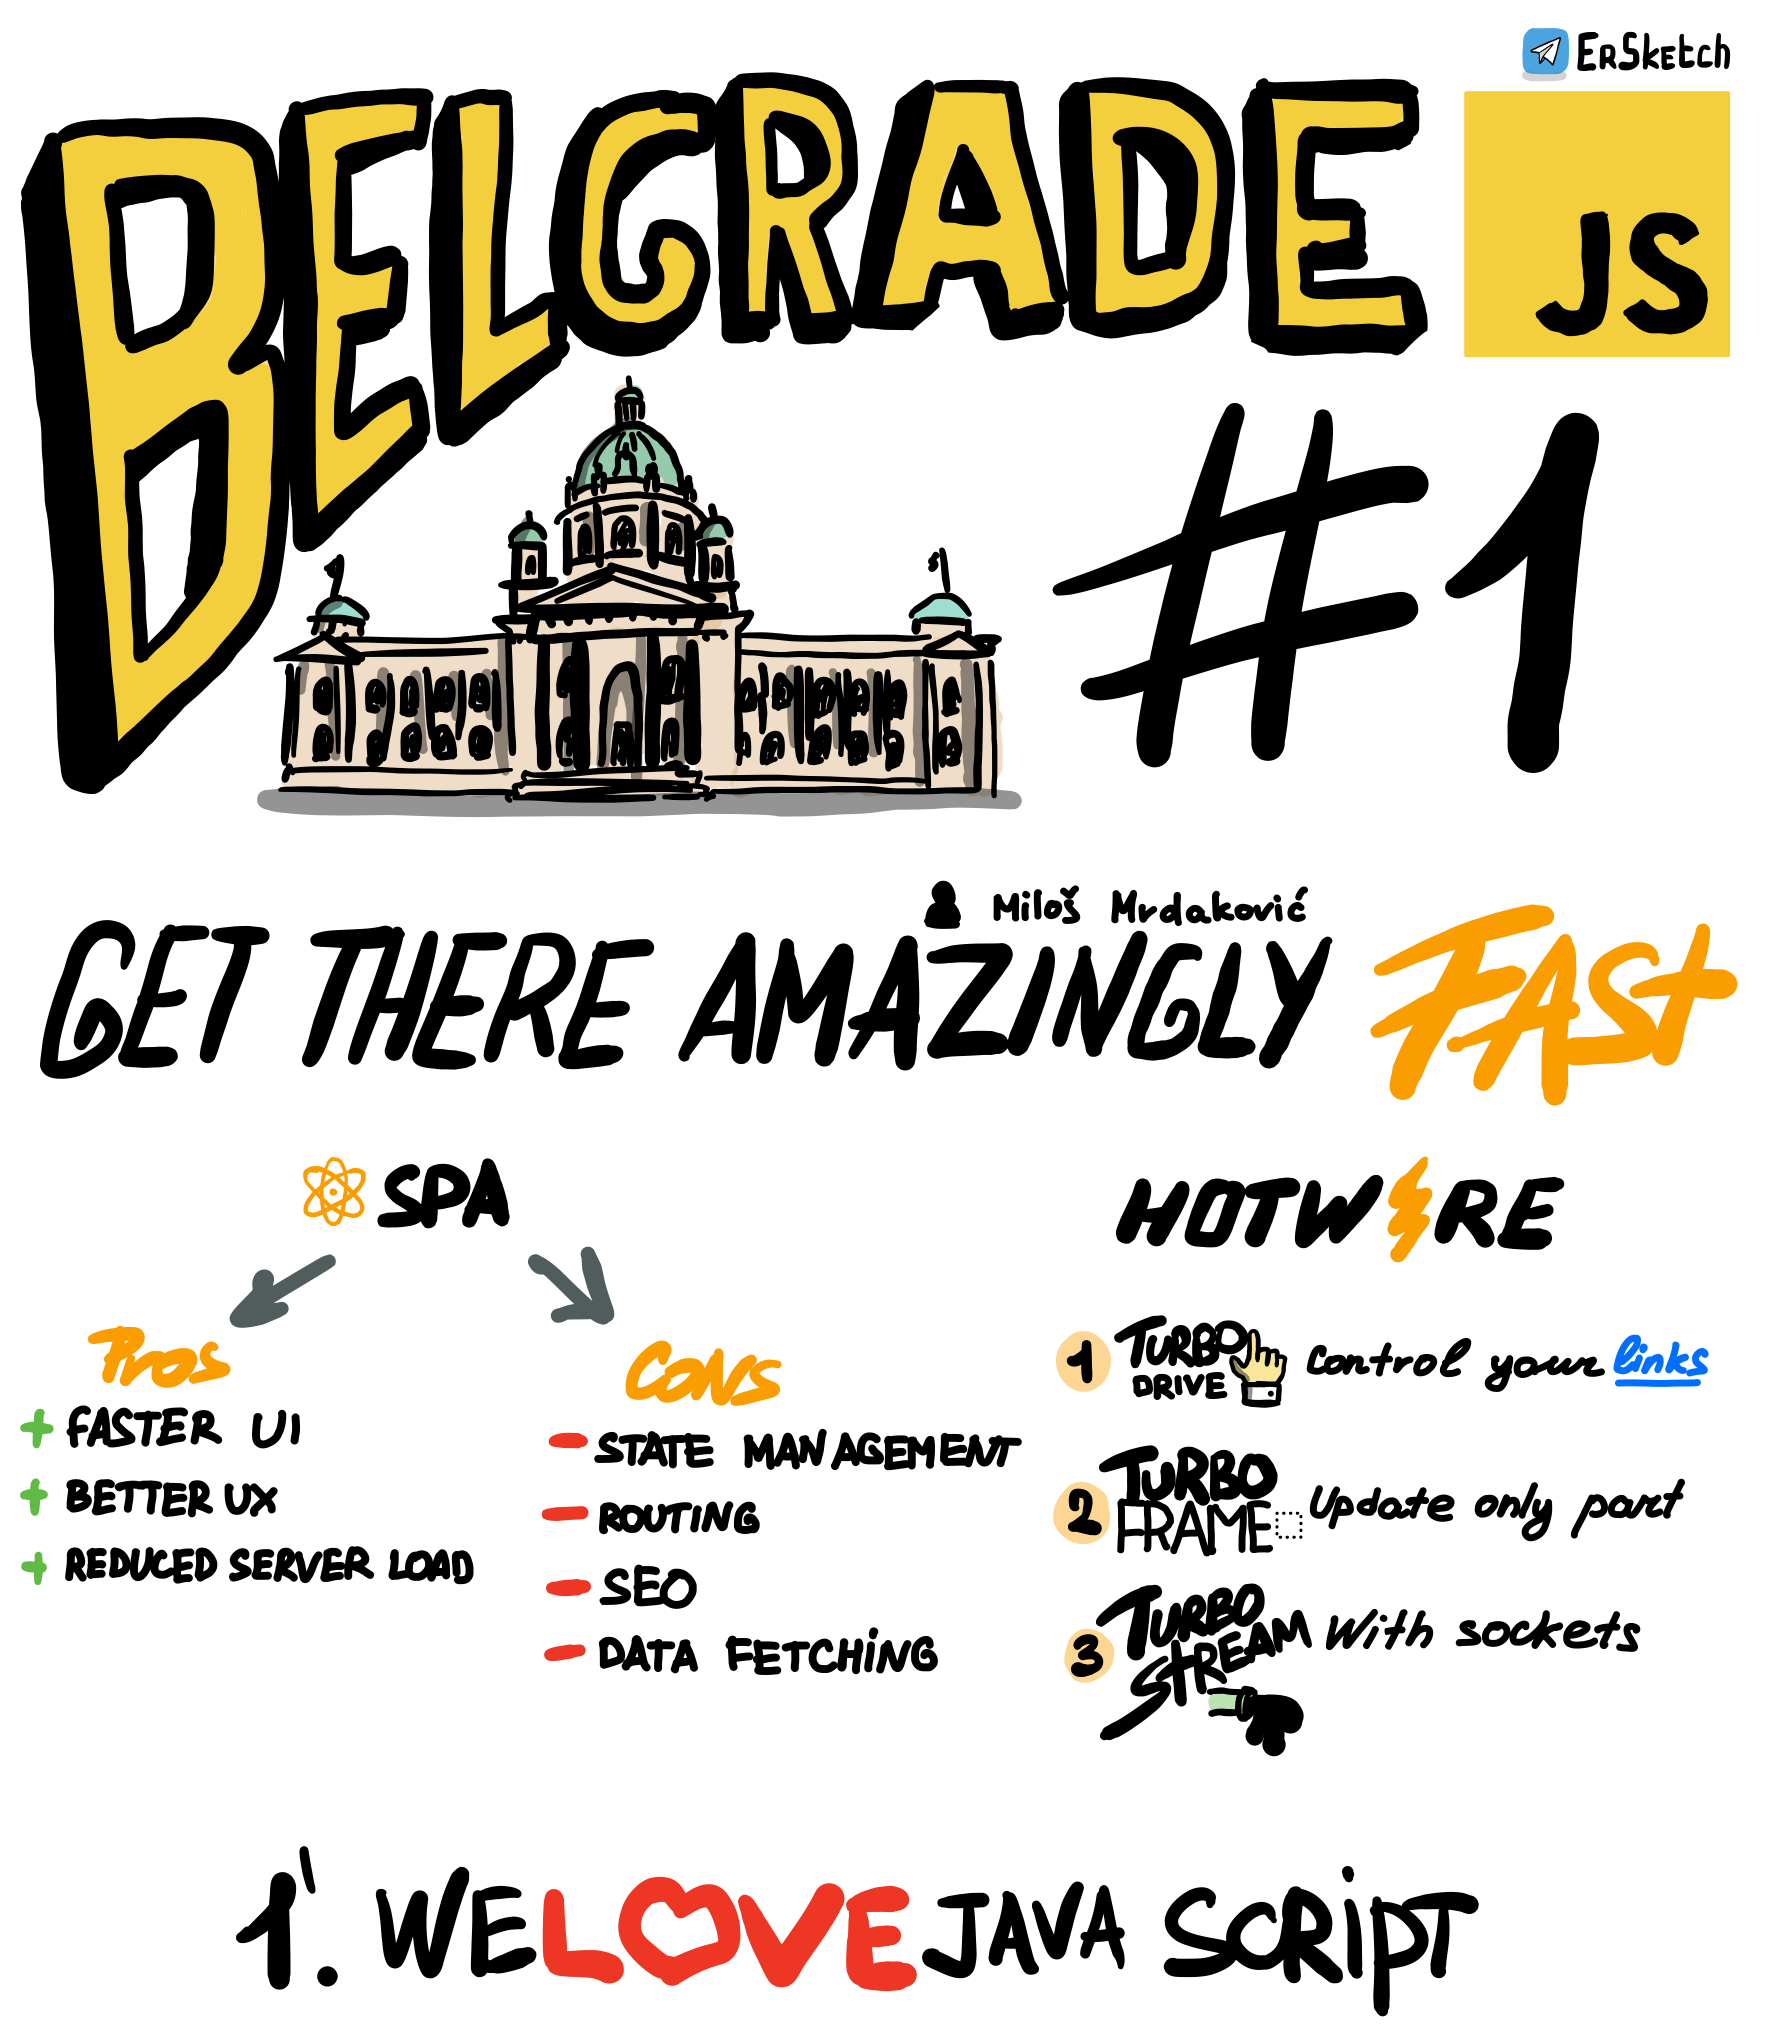 ErSketch
BELGRADE
JS
#1
Miloš Mrdaković
GET THERE AMAZINGLY FAST
SPA
HOTW RE
Pros
Cons
+ FASTER UI
+ BETTER UX
+ REDUCED SERVER LOAD
- STATE MANAGEMENT
- ROUTING
- SEO
- DATA FETCHING
1 TURBO DRIVE Control your links
2 TURBO FRAME Update only part
3 TURBO STREAM With sockets
1'. WE LOVE JAVA SCRIPT